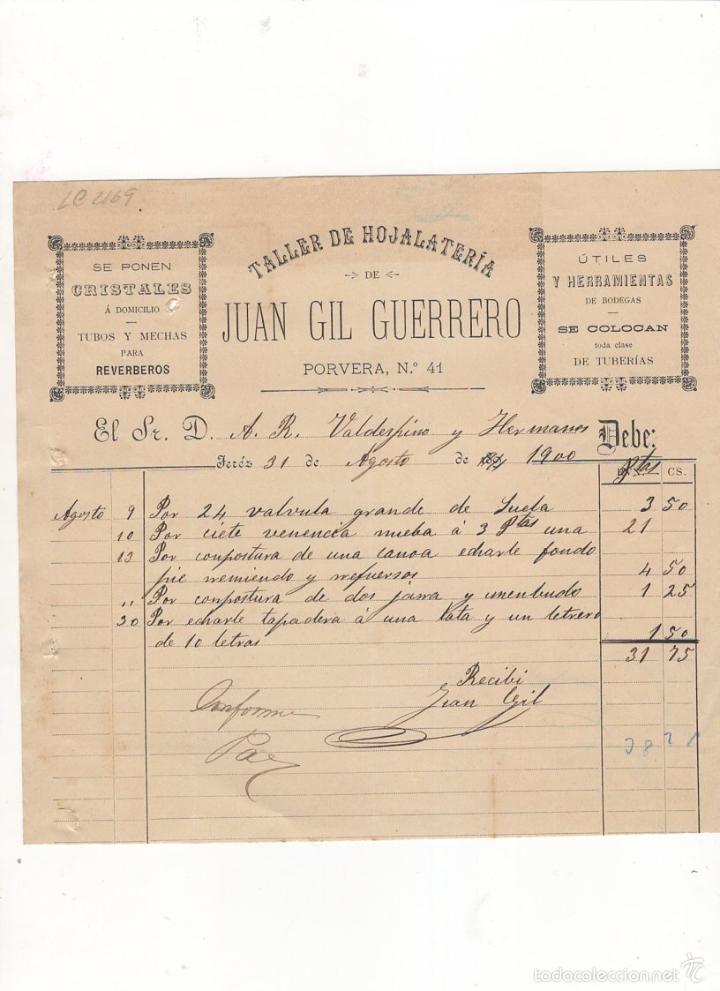 LC 2169
SE PONEN
CRISTALES
Á DOMICILIO
TUBOS Y MECHAS
PARA
REVERBEROS
TALLER DE HOJALATERÍA
DE
JUAN GIL GUERRERO
PORVERA, N.º 41
ÚTILES
Y HERRAMIENTAS
DE BODEGAS
SE COLOCAN
toda clase
DE TUBERÍAS
El Sr. D. A. R. Valdespino y Hermanos Debe:
Jeréz 31 de Agosto de 1900 Ptas CS.
Agosto 9 Por 24 valvula grande de Suela 3 50
10 Por ciete venencia nueba á 3 Ptas una 21
13 Por conpostura de una canoa echarle fondo
pie rremiendo y rrefuersos 4 50
" Por conpostura de dos jarra y unenbudo 1 25
30 Por echarle tapadera á una lata y un letrero
de 10 letras 1 50
31 75
Recibi
Juan Gil
Conforme
Paz
todocoleccion.net